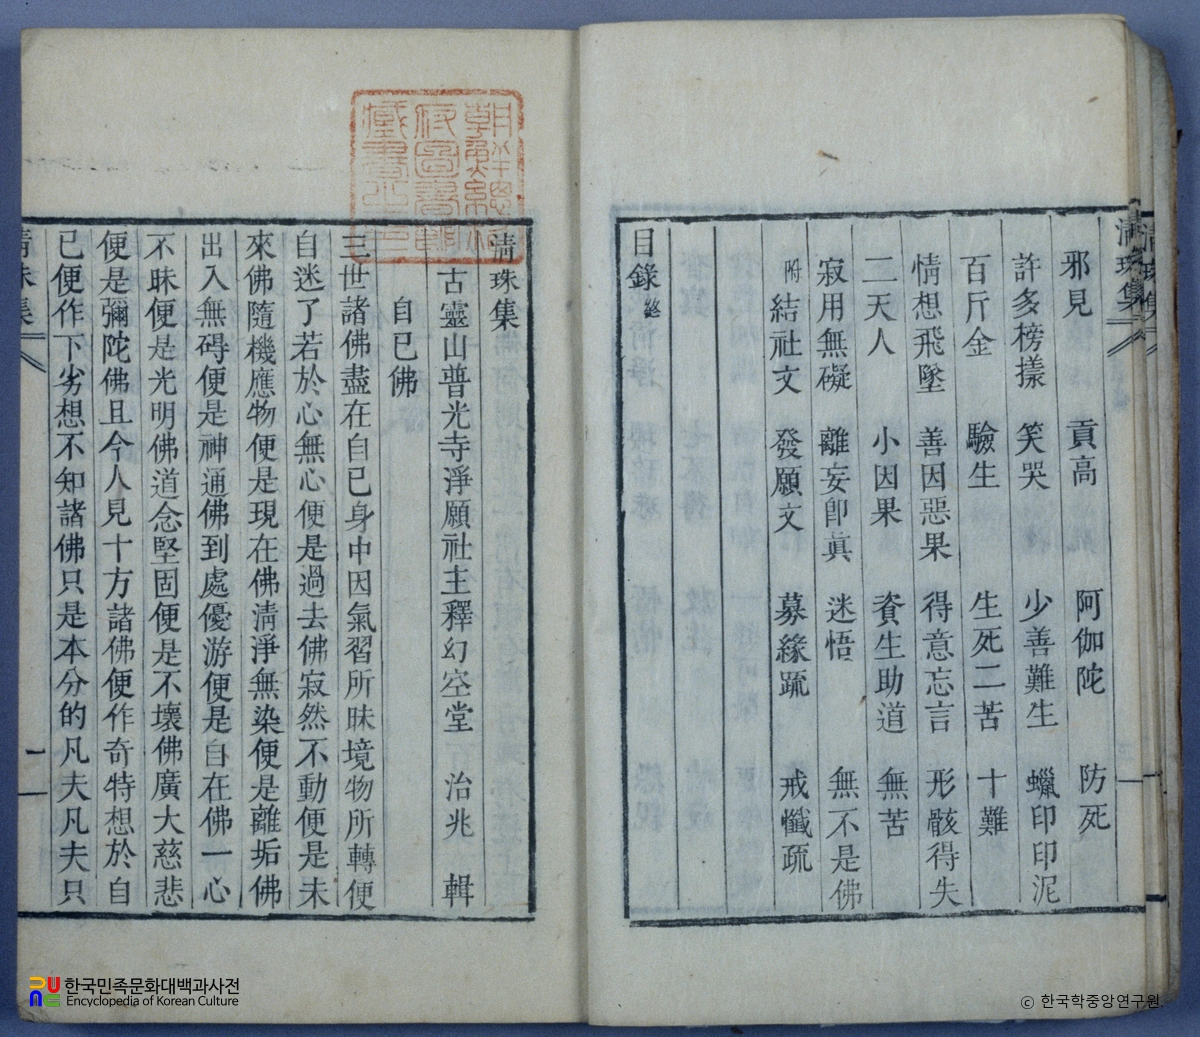 清珠集
邪見 貢高 阿伽陀 防死
許多榜㨾 笑哭 少善難生 蠟印印泥
百斤金 驗生 生死二苦 十難
情想飛墜 善因惡果 得意忘言 形骸得失
二天人 小因果 資生助道 無苦
寂用無礙 離妄卽眞 迷悟 無不是佛
附結社文 發願文 募緣疏 戒懺疏
目錄終
清珠集
古靈山普光寺淨願社主釋幻空堂 治兆 輯
自已佛
三世諸佛盡在自已身中因氣習所昧境物所轉便
自迷了若於心無心便是過去佛寂然不動便是未
來佛隨機應物便是現在佛淸淨無染便是離垢佛
出入無碍便是神通佛到處優游便是自在佛一心
不昧便是光明佛道念堅固便是不壞佛廣大慈悲
便是彌陀佛且今人見十方諸佛便作奇特想於自
已便作下劣想不知諸佛只是本分的凡夫凡夫只
清珠集
一
朝鮮總督府圖書館藏書之印
한국민족문화대백과사전
Encyclopedia of Korean Culture
© 한국학중앙연구원.